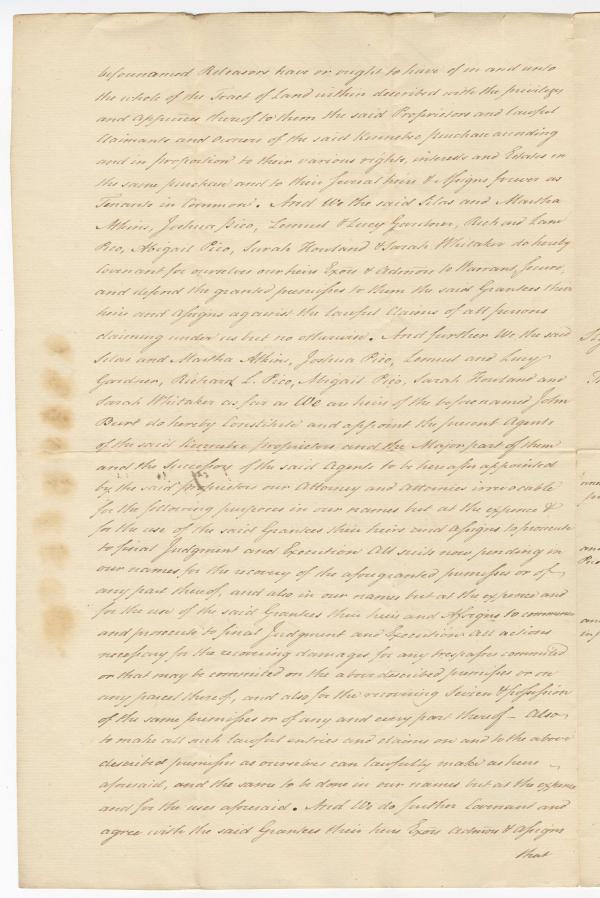 beforenamed Releasors have or ought to have of in and unto
the whole of the Tract of Land within described with the privileges
and Appurces thereof to them the said Proprietors and lawful
Claimants and Owners of the said Kennebec purchase according
and in proportion to their various rights, interests and Estates in
the same purchase and to their several heirs & Assigns forever as
Tenants in Common. And We the said Silas and Martha
Atkins, Joshua Pico, Lemuel & Lucy Gardner, Richard Lane
Pico, Abigail Pico, Sarah Howland & Sarah Whitaker do hereby
Covenant for ourselves our heirs Exõrs & Admõrs to Warrant, secure,
and defend the granted premisses to them the said Grantees their
heirs and Assigns against the lawful Claims of all persons
claiming under us but no otherwise. And further We the said
Silas and Martha Atkins, Joshua Pico, Lemuel and Lucy
Gardner, Richard L. Pico, Abigail Pico, Sarah Howland and
Sarah Whitaker as far as We are heirs of the before named John
Burt do hereby Constitute and appoint the present Agents
of the said Kennebec proprietors and the Major part of them
and the Successors of the said Agents to be hereafter appointed
by the said proprietors our Attorney and Attornies irrevocable
for the following purposes in our names but at the expence &
for the use of the said Grantees their heirs and Assigns to prosecute
to final Judgment and Execution All suits now pending in
our names for the recovery of the aforegranted premisses or of
any part thereof, and also in our names but at the expence and
for the use of the said Grantees their heirs and Assigns to commence
and prosecute to final Judgment and Execution all actions
necessary for the recovering damages for any trespasses committed
or that may be committed on the above described premisses or on
any parcel thereof, and also for the recovering Seizen & possession
of the same premisses or of any and every part thereof – Also
to make all such lawful entries and claims on and to the above
described premisses as ourselves can lawfully make as heirs
aforesaid, and the same to be done in our names but at the expence
and for the uses aforesaid. And We do further Covenant and
agree with the said Grantees their heirs Exõrs Admõrs & Assigns
that